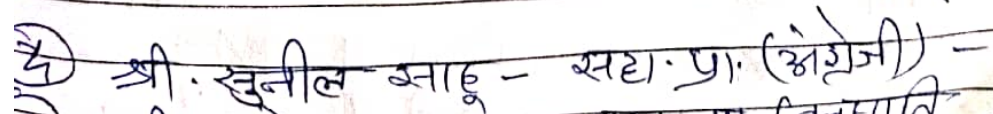 श्री. सुनील साहू - सहा. प्रा. (अंग्रेजी) -